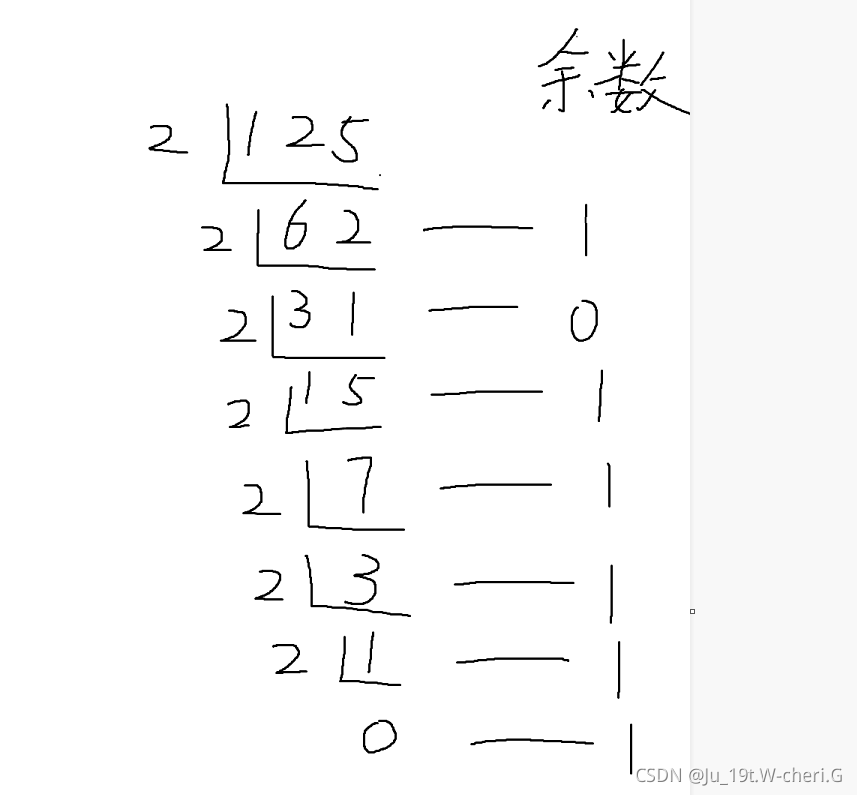 余数
2 125
2 62 — 1
2 31 — 0
2 15 — 1
2 7 — 1
2 3 — 1
2 1 — 1
0 — 1
CSDN @Ju_19t.W-cheri.G